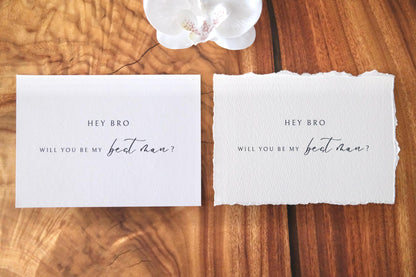 HEY BRO
WILL YOU BE MY best man?
HEY BRO
WILL YOU BE MY best man?